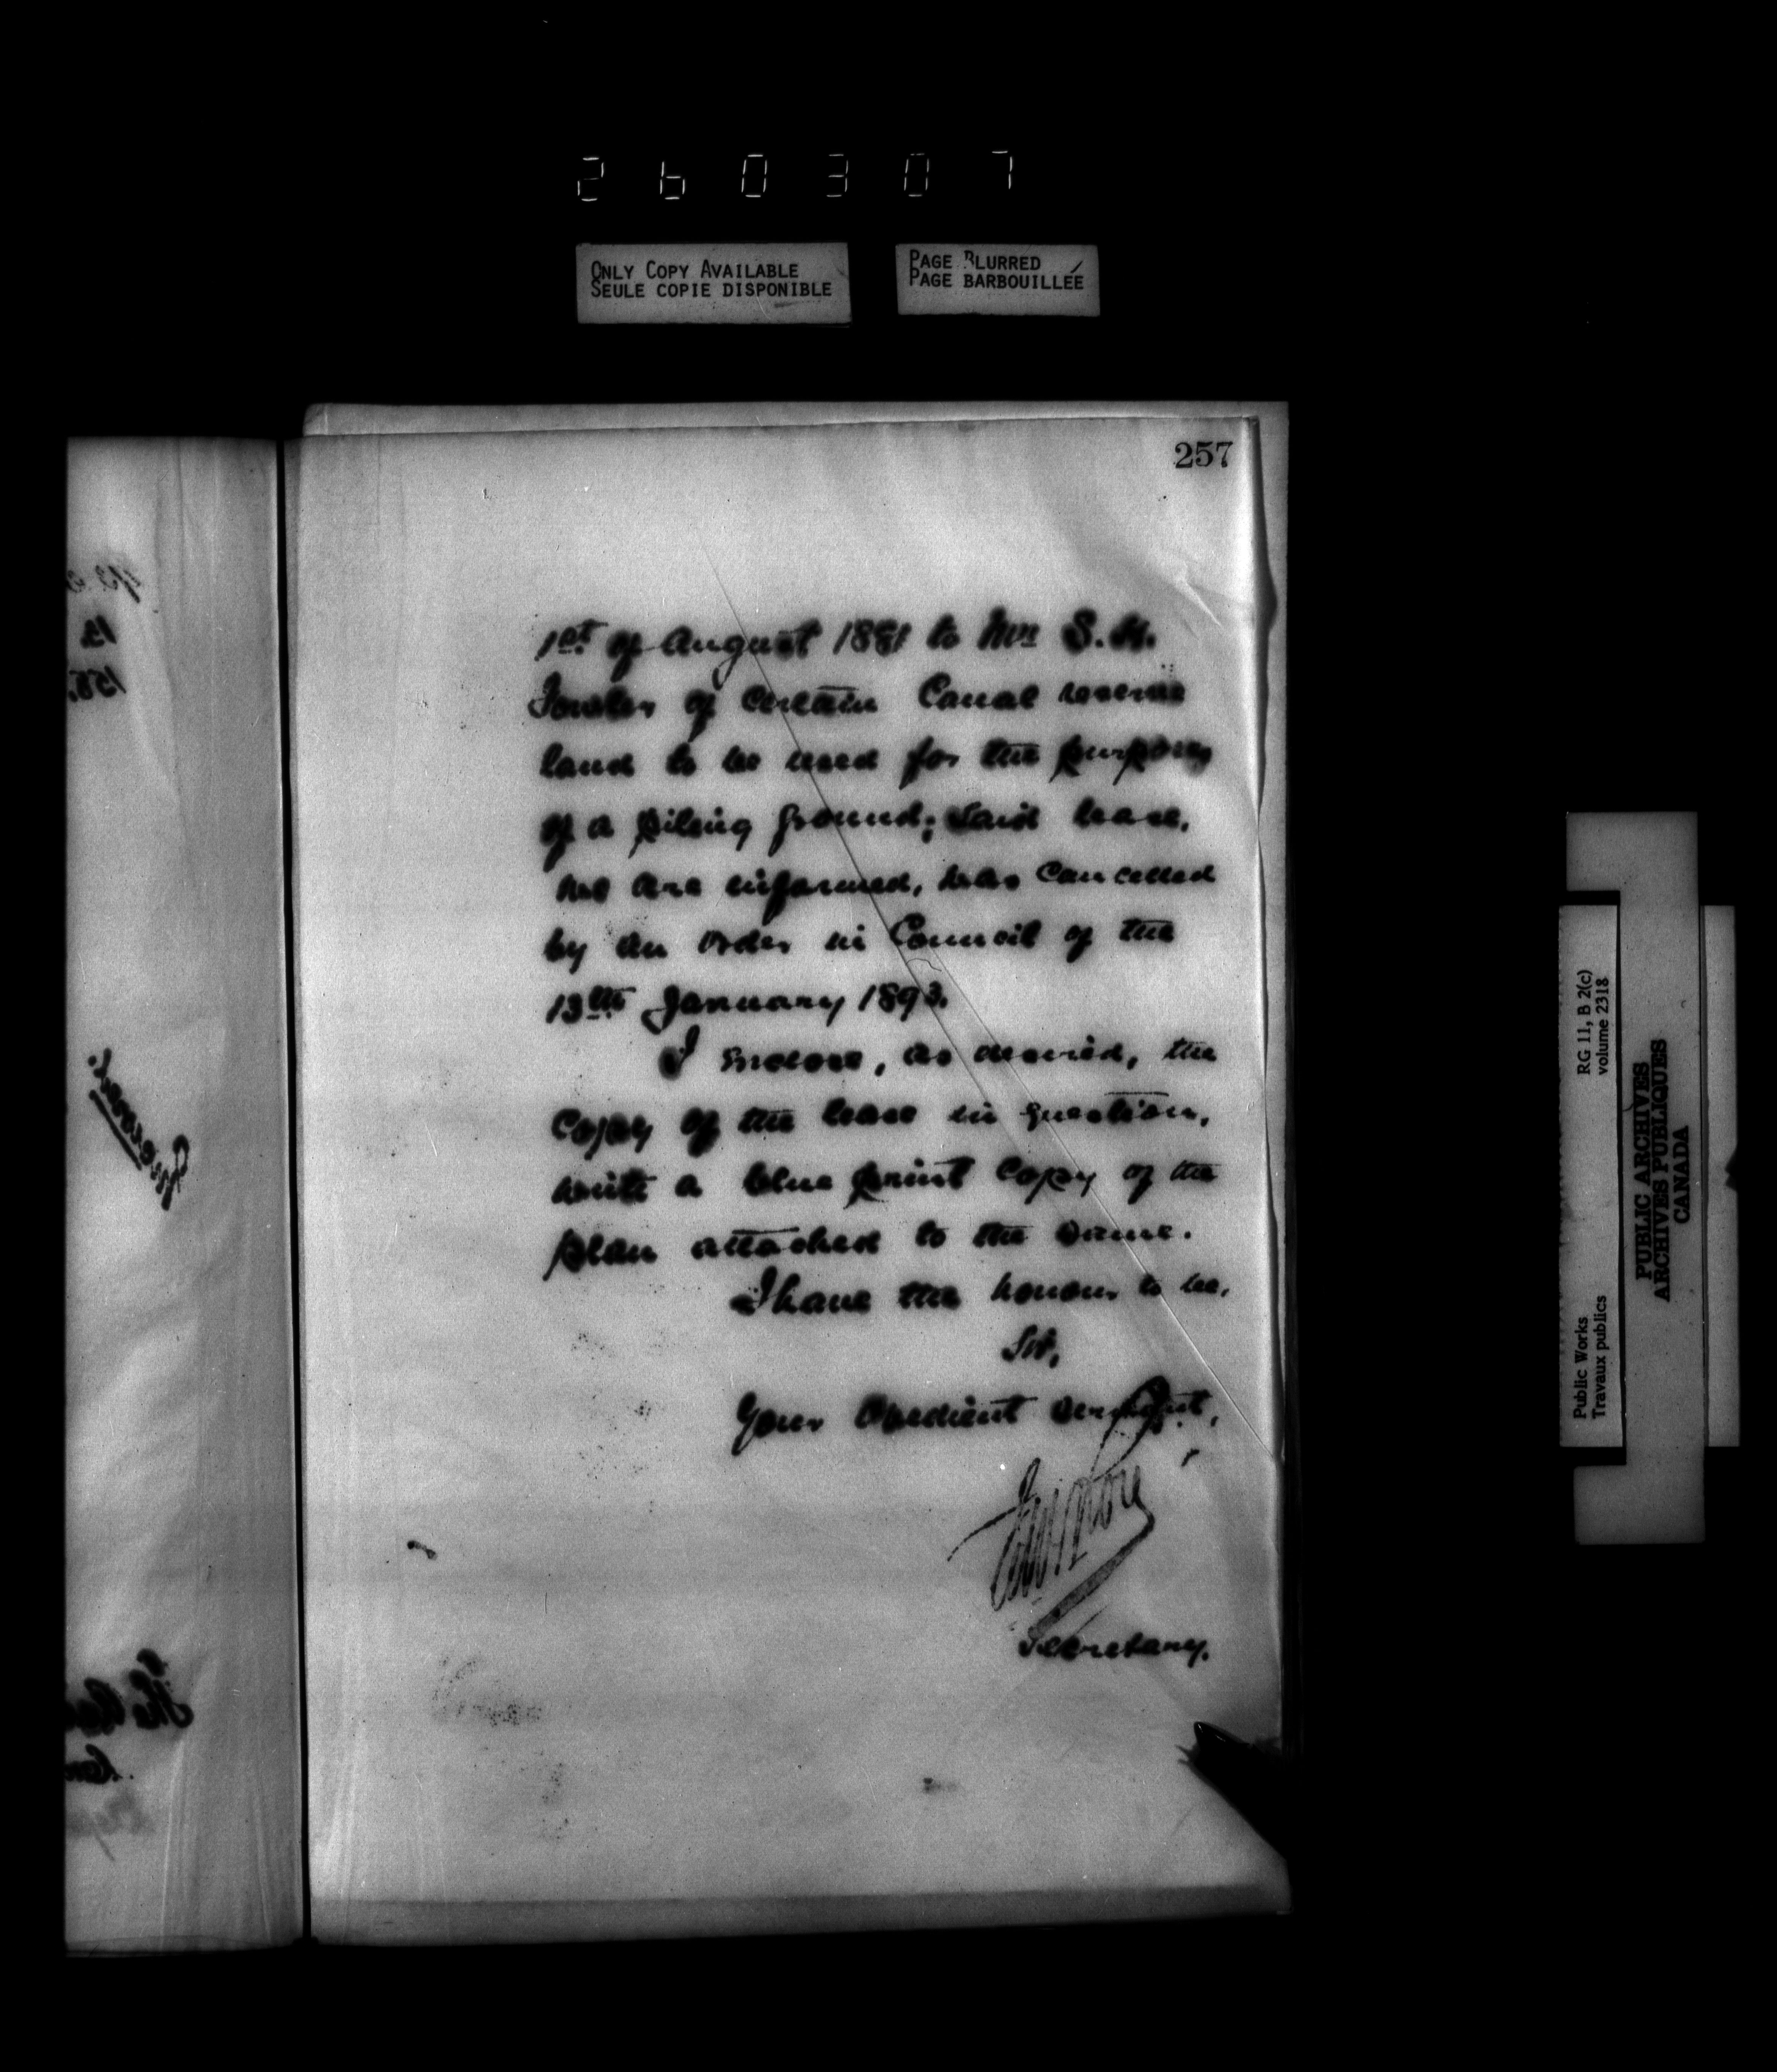 260307
ONLY COPY AVAILABLE
SEULE COPIE DISPONIBLE
PAGE BLURRED
PAGE BARBOUILLÉE
257
1st of August 1881 to Mr S. H.
Fowler of certain Canal reserve
land to be used for the purpose
of a piling ground; said lease,
we are informed, was cancelled
by an Order in Council of the
13th January 1893.
I enclose, as desired, the
copy of the lease in question,
with a blue print copy of the
plan attached to the same.
I have the honour to be,
Sir,
Your obedient servant,
Secretary.
Public Works
Travaux publics
RG 11, B 2(c)
volume 2318
PUBLIC ARCHIVES
ARCHIVES PUBLIQUES
CANADA